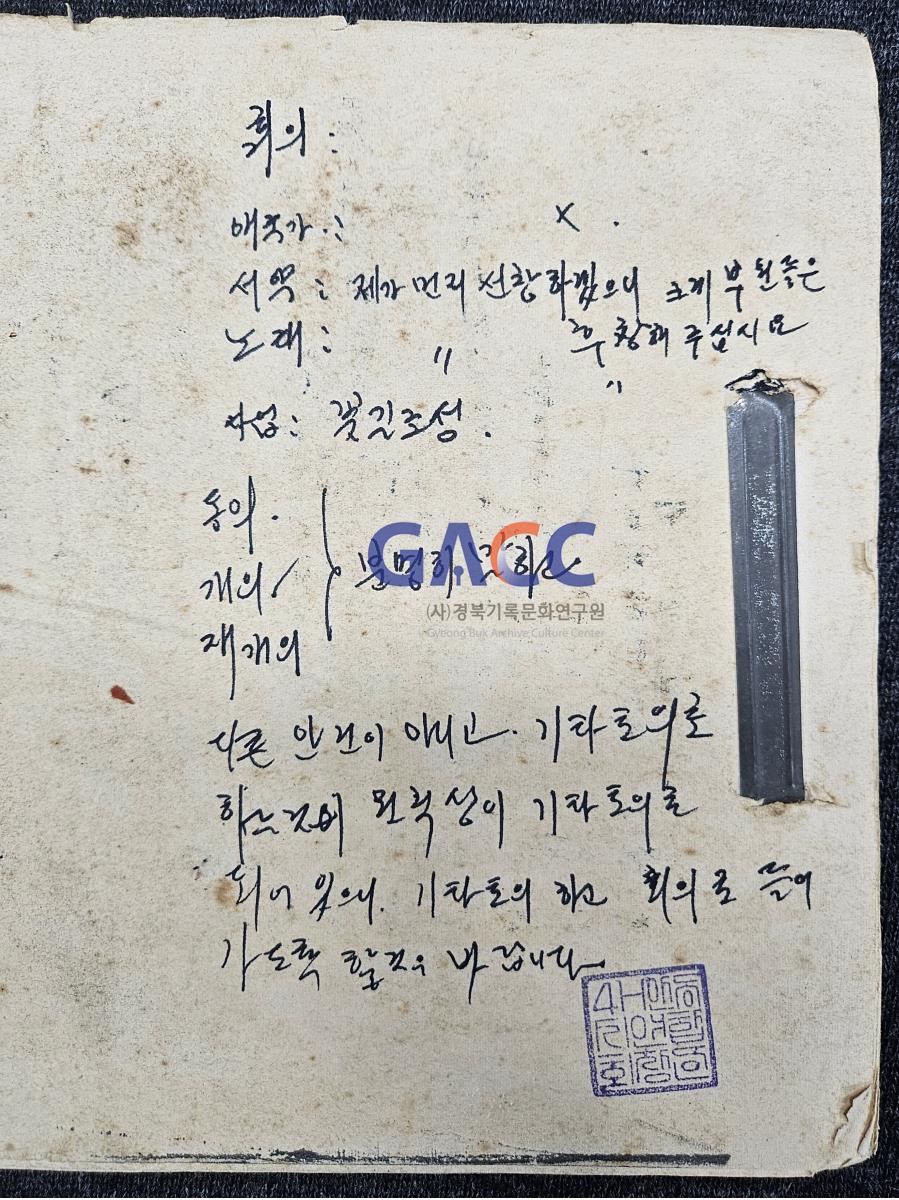 회의 :
애국가 . : X .
서약 : 제가 먼저 선창하겠으니 크게 부원들은
노래 : 〃 후창해 주십시요
〃
사업 : 꽃길조성 .
동의 .
개의 분명히 하고
재개의
GACC
(사)경북기록문화연구원
Gyeong Buk Archive Culture Center
다른 안건이 아니고 . 기타토의로
하는것이 기타토의로
되어 있으니 . 기타토의 하고 회의로 들어
가도록 할것을 바랍니다.
4H